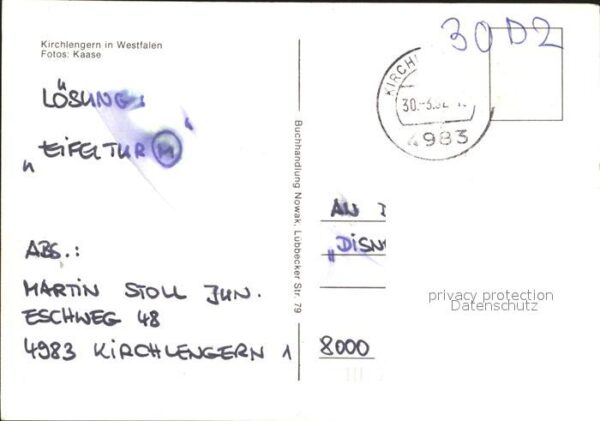 Kirchlengern in Westfalen
Fotos: Kaase
LÖSUNG:
„EIFELTURM“
ABS.:
MARTIN STOLL JUN.
ESCHWEG 48
4983 KIRCHLENGERN 1
Buchhandlung Nowak, Lübbecker Str. 79
30 D2
KIRCH
30.-3.
4983
AN
„DISN
8000
privacy protection
Datenschutz